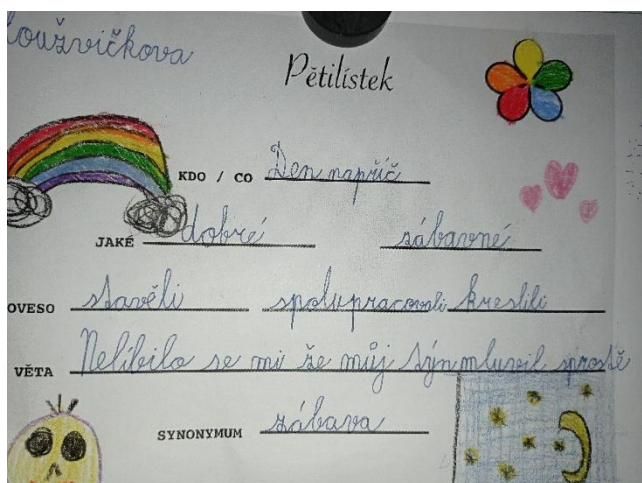 Pětilístek
KDO / CO Den napříč
JAKÉ dobré zábavné
OVESO stavěli spolupracovali kreslili
VĚTA Nelíbilo se mi že můj tým mluvil sprostě
SYNONYMUM zábava